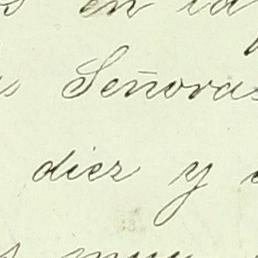 en la
Señoras
diez y
muy